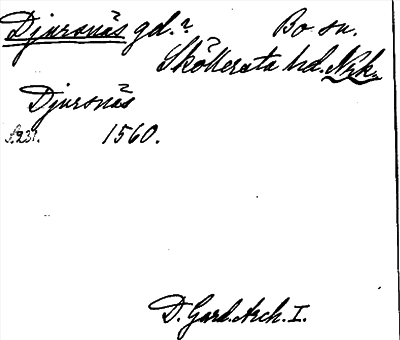 Djursnäs gd.? Bo sn.
Sköllersta hd. Nrk.
Djursnäs
f. 231. 1560.
D. Gard. Arch. I.